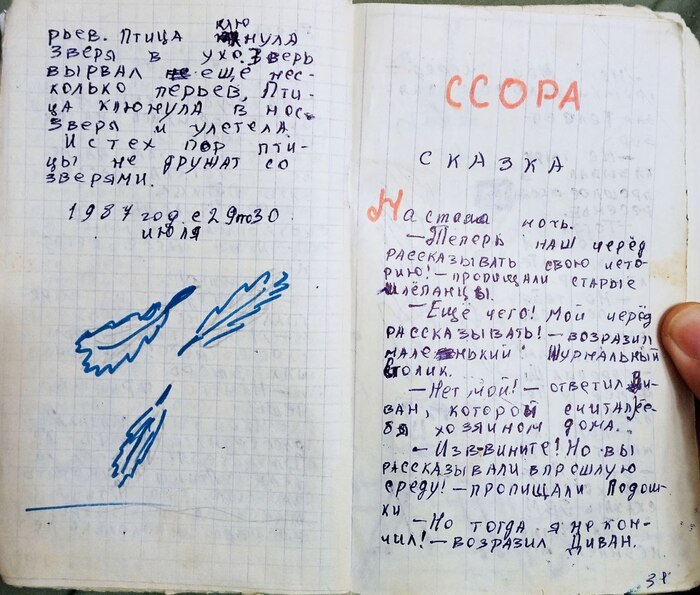 рьев. Птица клюнула
зверя в ухо. Зверь
вырвал ещё нес-
колько перьев, Пти-
ца клюнула в нос
зверя и улетела
И с тех пор пти-
цы не дружат со
зверями.
1987 год. с 29 по 30
июля
ССОРА
СКАЗКА
Настала ночь.
—Теперь наш черёд
рассказывать свою исто-
рию! — пропищали старые
шлёпанцы.
—Ещё чего! Мой черёд
рассказывать! — возразил
маленький Журнальный
Столик.
—Нет мой! — ответил Ди-
ван, которой считал се-
бя хозяином дома.
— Изввините! Но вы
рассказывали в прошлую
среду! — пропищали Подош-
ки
—Но тогда я не кон-
чил! — возразил Диван.